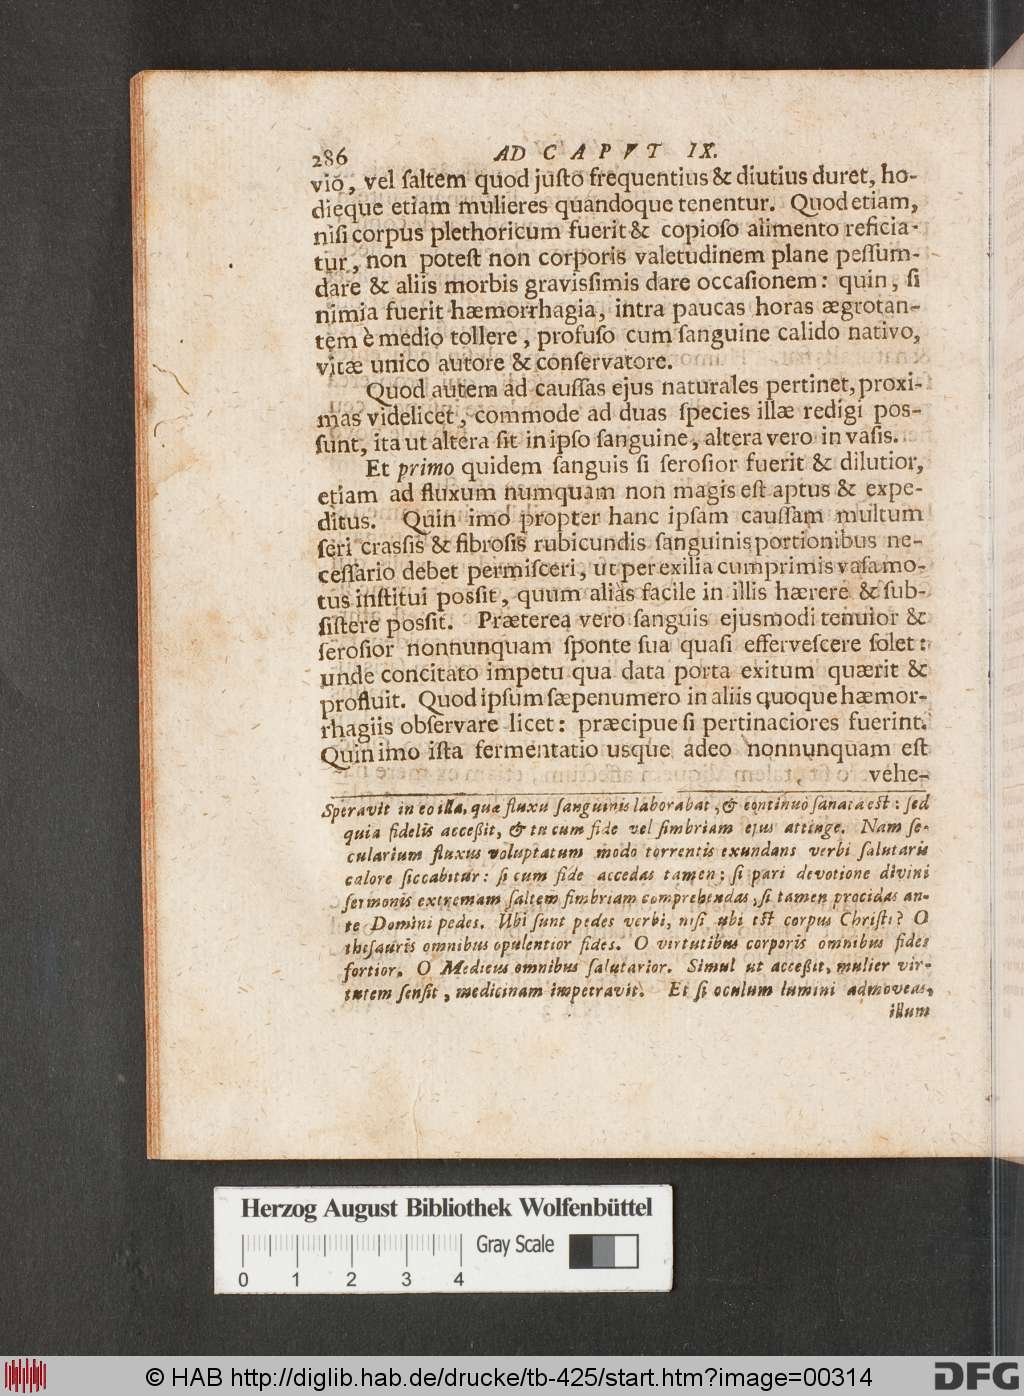 286 AD CAPVT IX.
viō, vel ſaltem quod juſto frequentius & diutius duret, ho-
dieque etiam mulieres quandoque tenentur. Quod etiam,
niſi corpus plethoricum fuerit & copioſo alimento reficia-
tur, non poteſt non corporis valetudinem plane peſſum-
dare & aliis morbis graviſſimis dare occaſionem: quin, ſi
nimia fuerit hæmorrhagia, intra paucas horas ægrotan-
tem è medio tollere, profuſo cum ſanguine calido nativo,
vitæ unico autore & conſervatore.
Quod autem ad cauſſas ejus naturales pertinet, proxi-
mas videlicet, commode ad duas ſpecies illæ redigi poſ-
ſunt, ita ut altera ſit in ipſo ſanguine, altera vero in vaſis.
Et primo quidem ſanguis ſi ſeroſior fuerit & dilutior,
etiam ad fluxum numquam non magis eſt aptus & expe-
ditus. Quin imo propter hanc ipſam cauſſam multum
ſeri craſſis & fibroſis rubicundis ſanguinis portionibus ne-
ceſſario debet permiſceri, ut per exilia cumprimis vaſa mo-
tus inſtitui poſſit, quum aliàs facile in illis hærere & ſub-
ſiſtere poſſit. Præterea vero ſanguis ejusmodi tenuior &
ſeroſior nonnunquam ſponte ſua quaſi efferveſcere ſolet:
unde concitato impetu qua data porta exitum quærit &
profluit. Quod ipſum ſæpenumero in aliis quoque hæmor-
rhagiis obſervare licet: præcipue ſi pertinaciores fuerint.
Quin imo iſta fermentatio usque adeo nonnunquam eſt
vehe-
Speravit in eo illa, quæ fluxu ſanguinis laborabat, & continuò ſanata eſt: ſed
quia fidelis acceßit, & tu cum fide vel fimbriam ejus attinge. Nam ſe-
cularium fluxus voluptatum modo torrentis exundans verbi ſalutaris
calore ſiccabitur: ſi cum fide accedas tamen; ſi pari devotione divini
ſermonis extremam ſaltem fimbriam comprehendas, ſi tamen procidas an-
te Domini pedes. Ubi ſunt pedes verbi, niſi ubi eſt corpus Chriſti? O
theſauris omnibus opulentior fides. O virtutibus corporis omnibus fides
fortior. O Medicus omnibus ſalutarior. Simul ut acceßit, mulier vir-
tutem ſenſit, medicinam impetravit. Et ſi oculum lumini admoveas,
illum
Herzog August Bibliothek Wolfenbüttel
Gray Scale
0 1 2 3 4
© HAB http://diglib.hab.de/drucke/tb-425/start.htm?image=00314
DFG